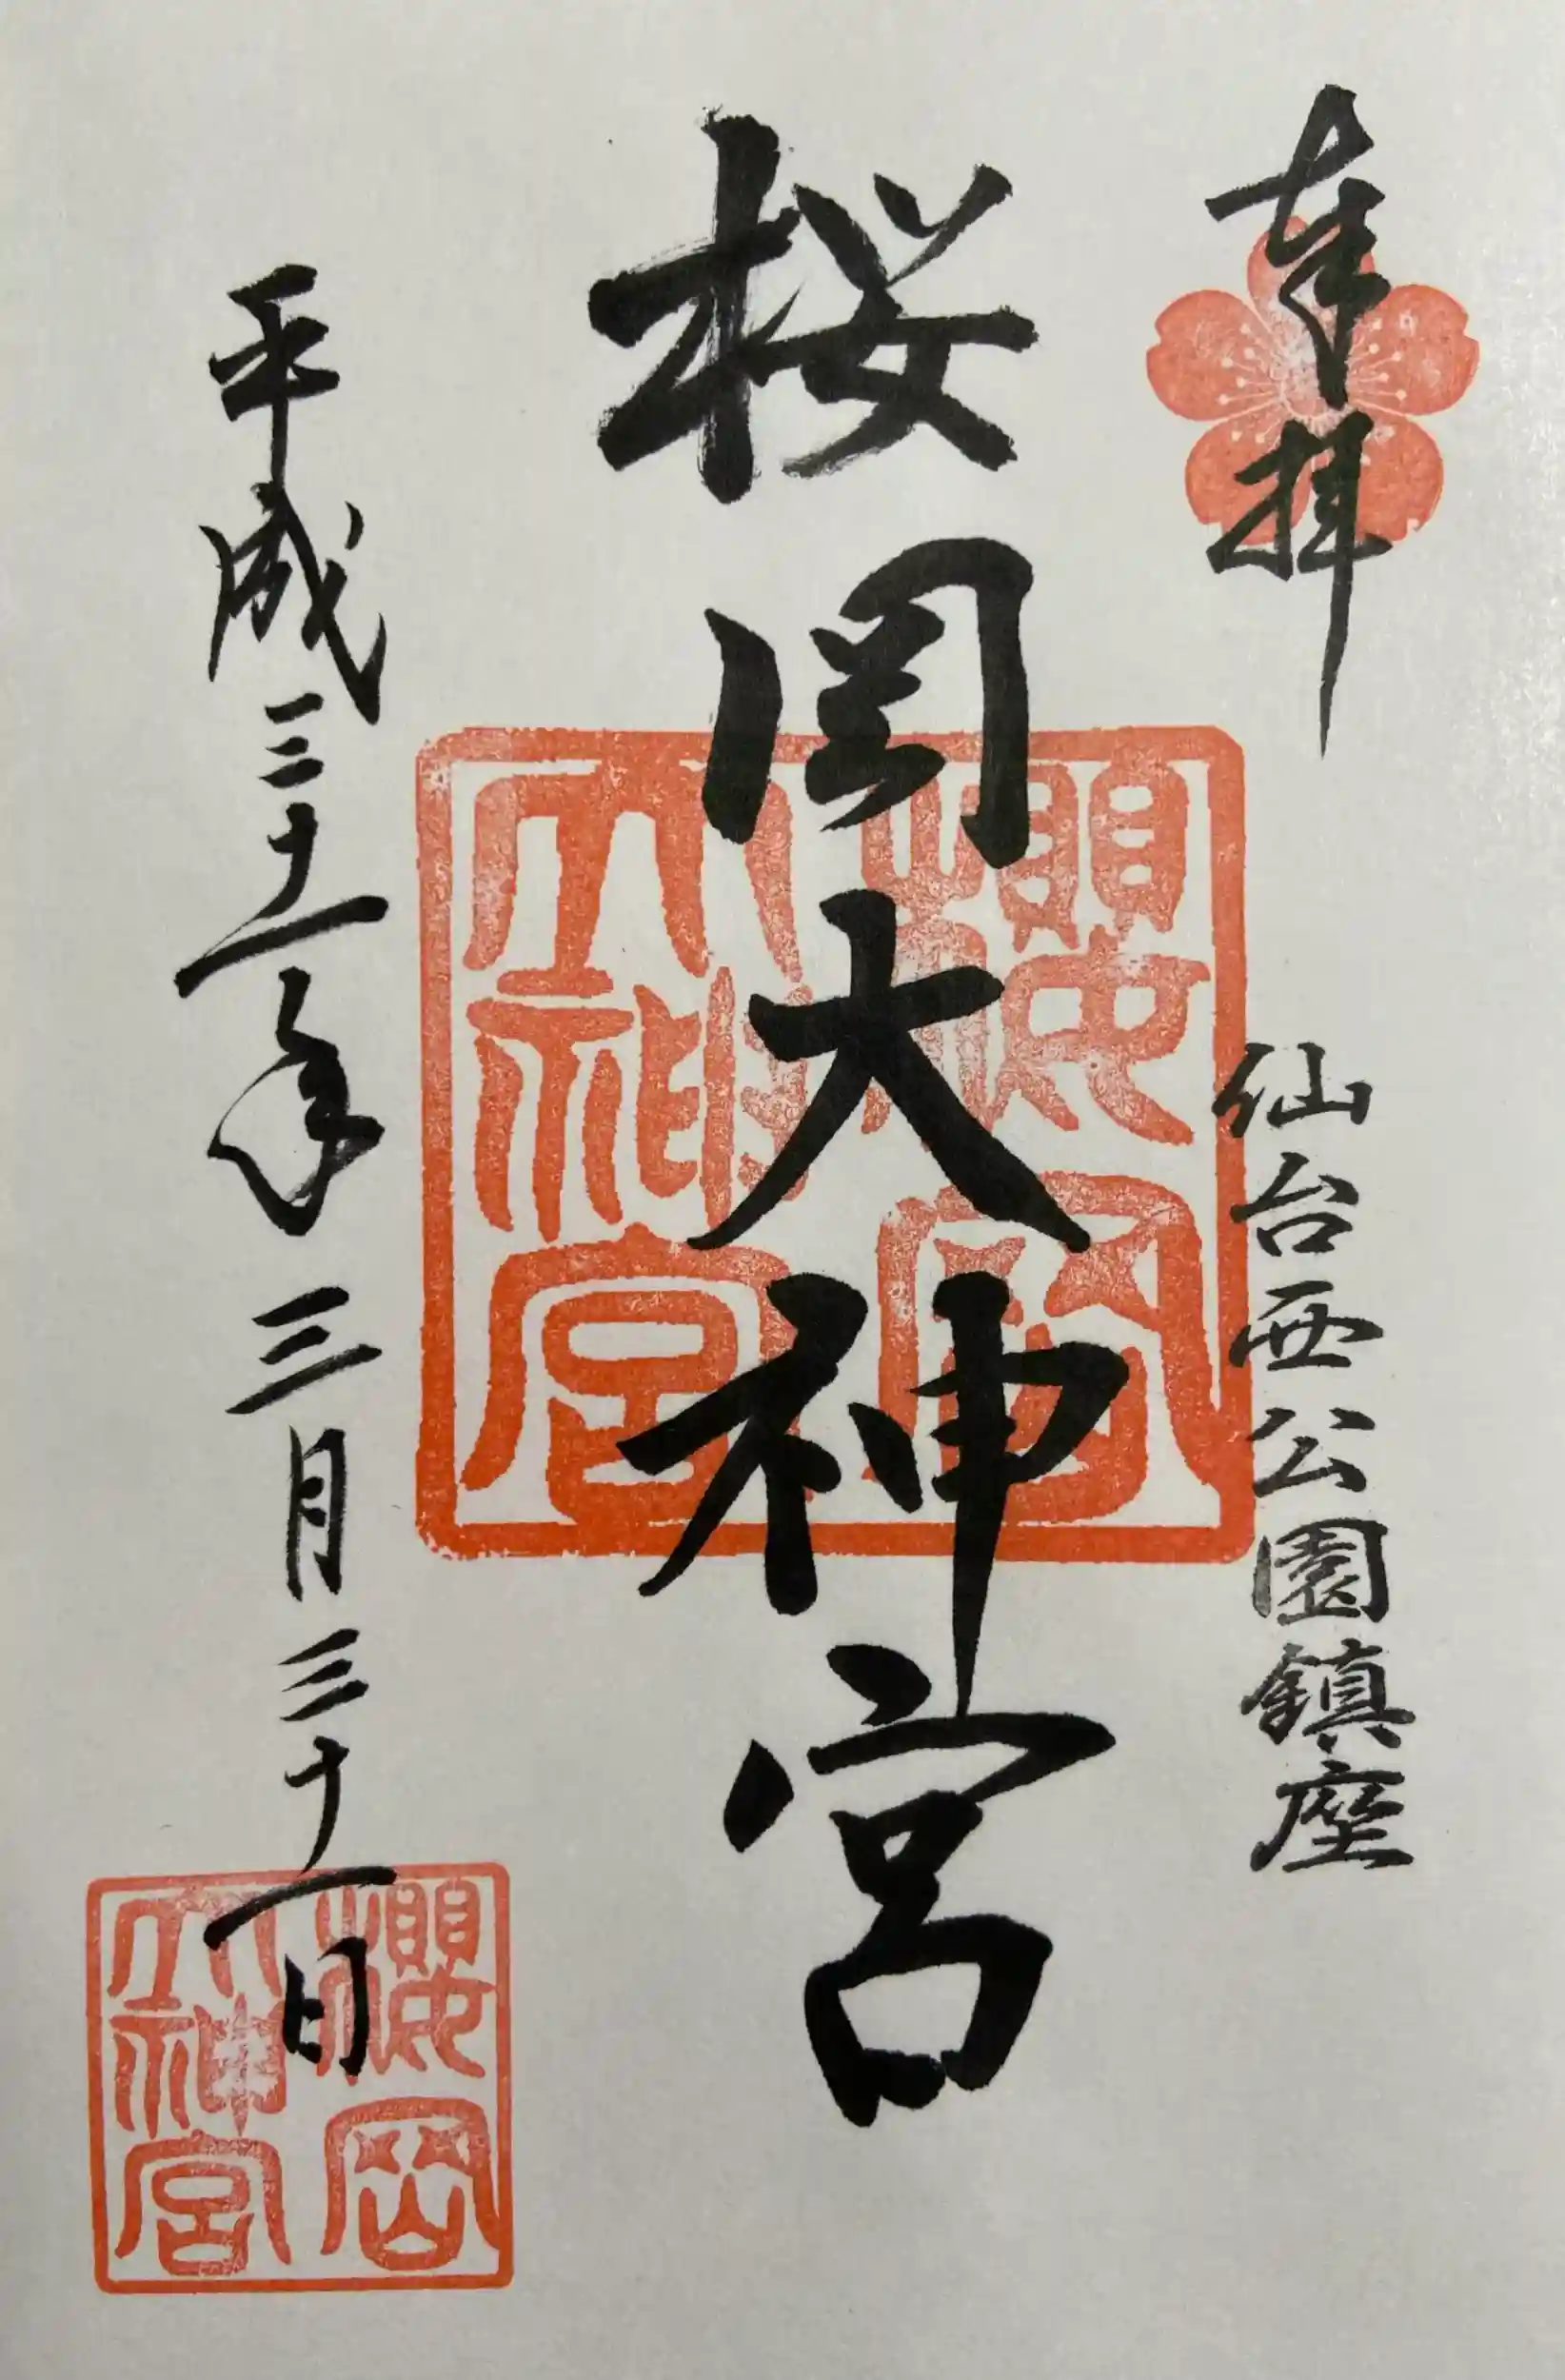 奉拝
仙台西公園鎮座
桜岡大神宮
平成三十一年三月三十一日
櫻岡
大神宮
櫻岡
大神宮